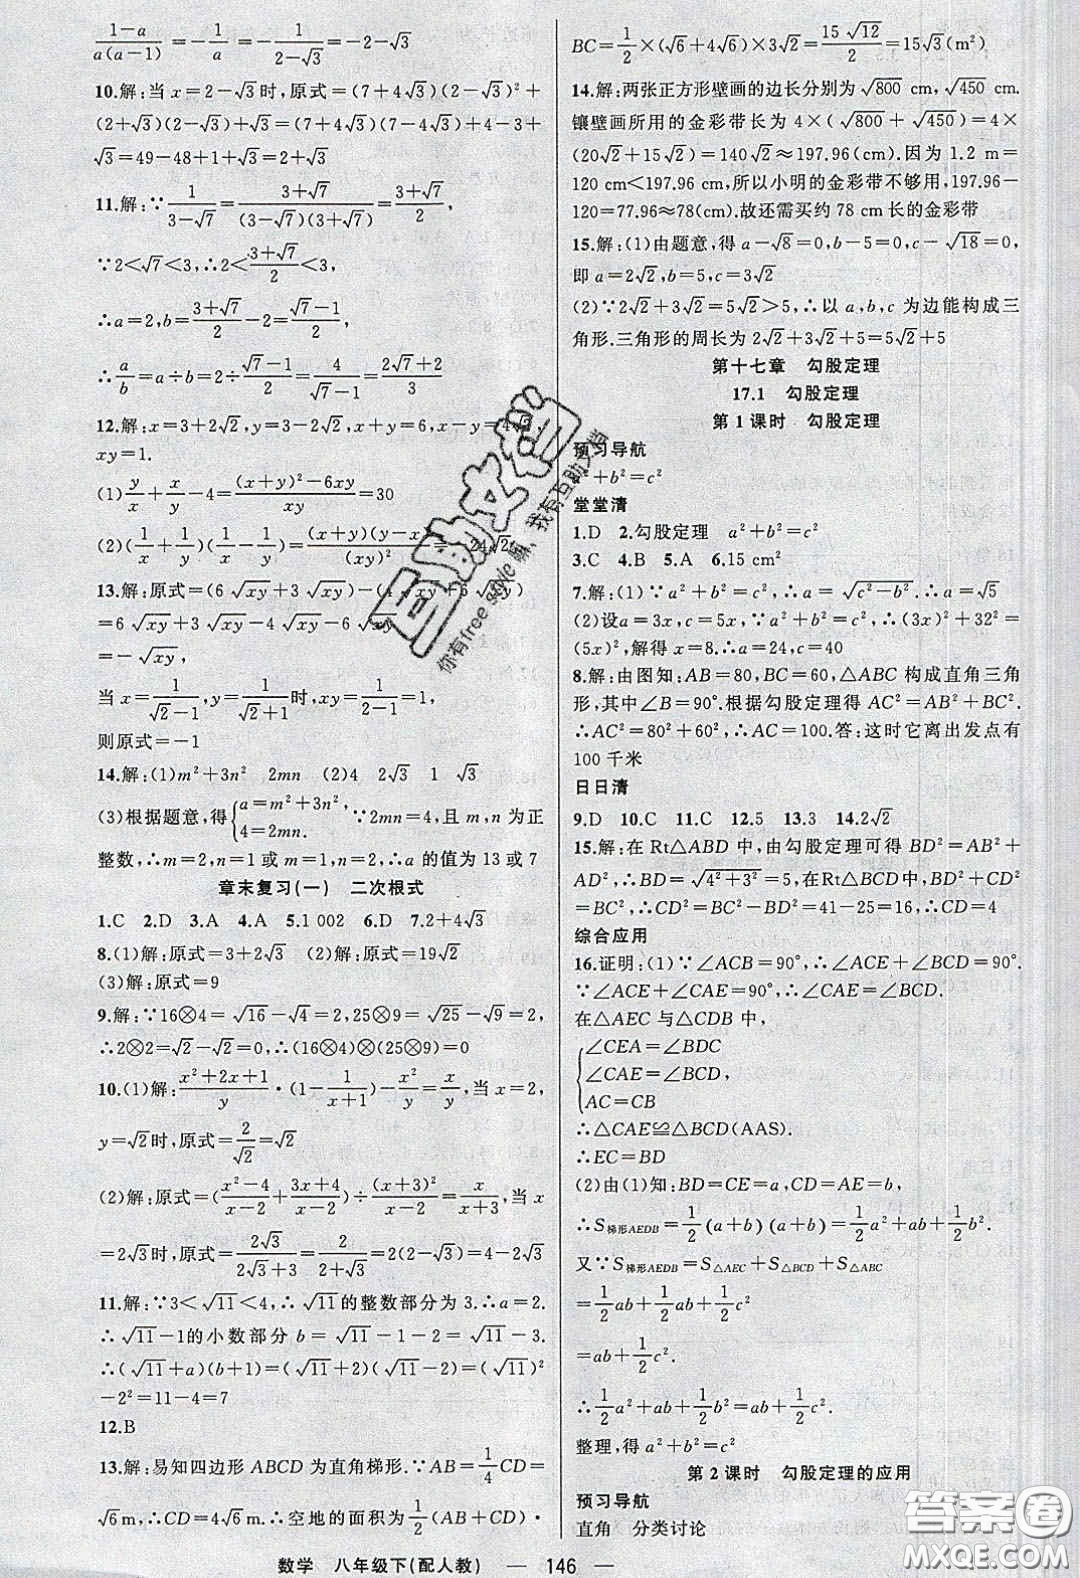 (1-a)/(a(a-1))=-1/a=-1/(2-√3)=-2-√3
10.解:当x=2-√3时,原式=(7+4√3)(2-√3)²+
(2+√3)(2-√3)+√3=(7+4√3)(7-4√3)+4-3+
√3=49-48+1+√3=2+√3
11.解:∵1/(3-√7)=(3+√7)/((3-√7)(3+√7))=(3+√7)/2,
∵2<√7<3,∴2<(3+√7)/2<3,
∴a=2,b=(3+√7)/2-2=(√7-1)/2,
∴a/b=a÷b=2÷(√7-1)/2=4/(√7-1)=(2√7+2)/3
12.解:x=3+2√2,y=3-2√2,x+y=6,x-y=4√2,
xy=1.
(1)y/x+x/y-4=((x+y)²-6xy)/xy=30
(2)(1/x+1/y)(1/x-1/y)=(x+y)(y-x)/(xy)²=-24√2
13.解:原式=(6√xy+3√xy)-(4√xy+6√xy)
=6√xy+3√xy-4√xy-6√xy
=-√xy,
当x=1/(√2-1),y=1/(√2+1)时,xy=1/(2-1)=1,
则原式=-1
14.解:(1)m²+3n² 2mn (2)4 2√3 1 √3
(3)根据题意,得{a=m²+3n², 4=2mn. ∵2mn=4,且m,n为正
整数,∴m=2,n=1或m=1,n=2,∴a的值为13或7
章末复习(一) 二次根式
1.C 2.D 3.A 4.A 5.1 002 6.D 7.2+4√3
8.(1)解:原式=3+2√3 (2)解:原式=19√2
(3)解:原式=9
9.解:∵16⊗4=√16-√4=2,25⊗9=√25-√9=2,
∴2⊗2=√2-√2=0,∴(16⊗4)⊗(25⊗9)=0
10.(1)解:(x²+2x+1)/y·(1-1/(x+1))-x²/y=x/y,当x=2,
y=√2时,原式=2/√2=√2
(2)解:原式=((x²-4)/(x-2)+(3x+4)/(x-2))÷(x+3)²/(x-2)=x/(x+3),当x
=2√3时,原式=2√3/(2√3+3)=2/(2+√3)=2(2-√3)=4-2√3
11.解:∵3<√11<4,∴√11的整数部分为3.∴a=2.
∴√11-1的小数部分b=√11-1-2=√11-3.
∴(√11+a)(b+1)=(√11+2)(√11-2)=(√11)²
-2²=11-4=7
12.B
13.解:易知四边形ABCD为直角梯形.∵AB=1/4CD=
√6m,∴CD=4√6m.∴空地的面积为1/2(AB+CD)·
BC=1/2×(√6+4√6)×3√2=15√12/2=15√3(m²)
14.解:两张正方形壁画的边长分别为√800 cm,√450 cm.
镶壁画所用的金彩带长为4×(√800+√450)=4×
(20√2+15√2)=140√2≈197.96(cm).因为1.2 m=
120 cm<197.96 cm,所以小明的金彩带不够用,197.96-
120=77.96≈78(cm).故还需买约78 cm长的金彩带
15.解:(1)由题意,得a-√8=0,b-5=0,c-√18=0,
即a=2√2,b=5,c=3√2
(2)∵2√2+3√2=5√2>5,∴以a,b,c为边能构成三
角形.三角形的周长为2√2+3√2+5=5√2+5
第十七章 勾股定理
17.1 勾股定理
第1课时 勾股定理
预习导航
a²+b²=c²
堂堂清
1.D 2.勾股定理 a²+b²=c²
3.C 4.B 5.A 6.15 cm²
7.解:(1)∵a²+b²=c²,∴a=√(c²-b²).∴a=√5
(2)设a=3x,c=5x,∵a²+b²=c²,∴(3x)²+32²=
(5x)²,解得x=8.∴a=24,c=40
8.解:由图知:AB=80,BC=60,△ABC构成直角三角
形,其中∠B=90°.根据勾股定理得AC²=AB²+BC².
∴AC²=80²+60²,∴AC=100.答:这时它离出发点有
100千米
日日清
9.D 10.C 11.C 12.5 13.3 14.2√2
15.解:在Rt△ABD中,由勾股定理可得BD²=AB²+
AD²,∴BD=√(4²+5²)=√41,在Rt△BCD中,BD²
=BC²+CD²,∴CD²=BD²-BC²=41-25=16,∴CD=4
综合应用
16.证明:(1)∵∠ACB=90°,∴∠ACE+∠BCD=90°.
∵∠ACE+∠CAE=90°,∴∠CAE=∠BCD.
在△AEC与△CDB中,
∠CEA=∠BDC
∠CAE=∠BCD,
AC=CB
∴△CAE≌△BCD(AAS).
∴EC=BD
(2)由(1)知:BD=CE=a,CD=AE=b,
∴S梯形AEDB=1/2(a+b)(a+b)=1/2a²+ab+1/2b².
又∵S梯形AEDB=S△AEC+S△BCD+S△ABC
=1/2ab+1/2ab+1/2c²
=ab+1/2c².
∴1/2a²+ab+1/2b²=ab+1/2c².
整理,得a²+b²=c²
第2课时 勾股定理的应用
预习导航
直角 分类讨论
数学 八年级下(配人教) — 146 —
互助文档
你有free style嘛,我有互助文档
答案圈
MXQE.COM